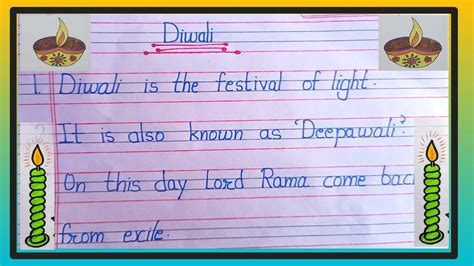 Diwali
1. Diwali is the festival of light.
2. It is also known as 'Deepawali'.
On this day Lord Rama come bac
from exile.